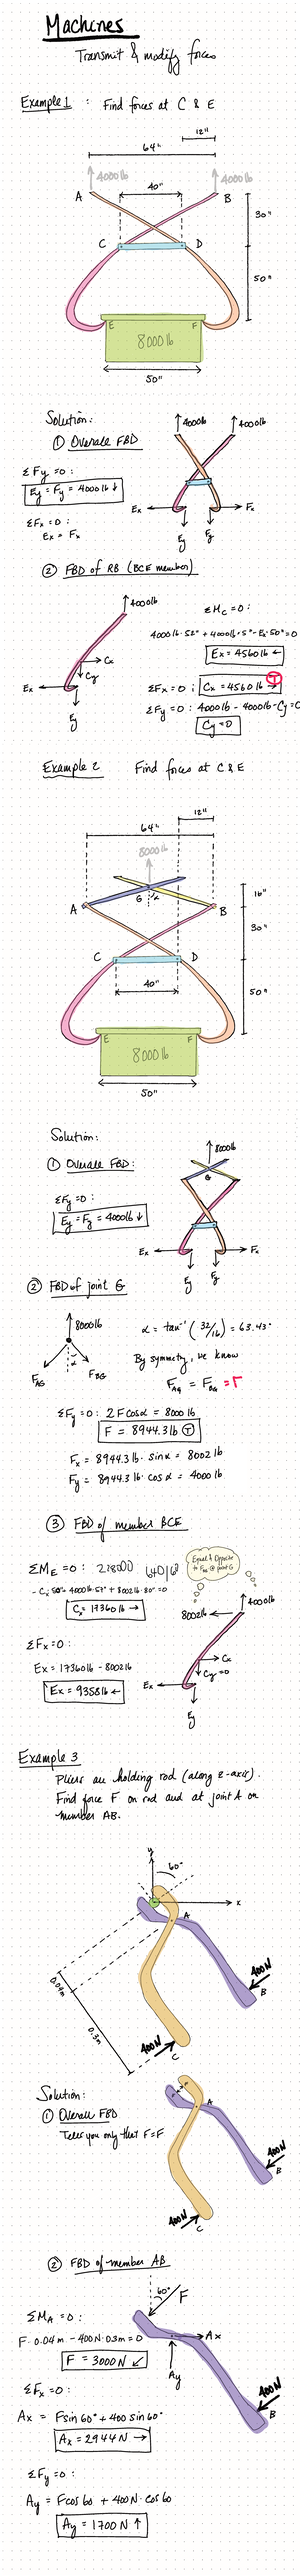 Machines
Transmit & modify forces
Example 1 : Find forces at C & E
12"
64"
4000 lb
4000 lb
A
40"
B
30"
C
D
50"
E
F
8000 lb
50"
Solution:
① Overall FBD
ΣFy = 0 :
Ey = Fy = 4000 lb ↓
ΣFx = 0 :
Ex = Fx
4000 lb
4000 lb
Ex
Fx
Ey
Fy
② FBD of RB (BCE member)
4000 lb
Cx
Cy
Ex
Ey
ΣMc = 0 :
4000 lb · 52" + 4000 lb · 5" - Ex · 50" = 0
Ex = 4560 lb ←
ΣFx = 0 ; Cx = 4560 lb → T
ΣFy = 0 : 4000 lb - 4000 lb - Cy = 0
Cy = 0
Example 2 Find forces at C & E
12"
64"
8000 lb
A
G
α
B
16"
30"
C
D
40"
50"
E
F
8000 lb
50"
Solution:
① Overall FBD:
ΣFy = 0 :
Ey = Fy = 4000 lb ↓
8000 lb
G
Ex
Fx
Ey
Fy
② FBD of joint G
8000 lb
α
FAG
FBG
α = tan⁻¹ (32/16) = 63.43°
By symmetry, we know
FAG = FBG = F
ΣFy = 0 : 2F cos α = 8000 lb
F = 8944.3 lb Ⓣ
Fx = 8944.3 lb · sin α = 8002 lb
Fy = 8944.3 lb · cos α = 4000 lb
③ FBD of member BCE
ΣME = 0 :
- Cx 50" - 4000 lb · 57" + 8002 lb · 80" = 0
Cx = 17360 lb →
ΣFx = 0 :
Ex = 17360 lb - 8002 lb
Ex = 9358 lb ←
Equal & Opposite
to FBG @ joint G
4000 lb
8002 lb
Cx
Cy = 0
Ex
Ey
Example 3
Pliers are holding rod (along z-axis).
Find force F on rod and at joint A on
member AB.
y
60°
x
A
0.04m
0.3m
400 N
B
400 N
C
Solution:
① Overall FBD
Tells you only that F = F
A
400 N
B
400 N
C
② FBD of member AB
ΣMA = 0 :
F · 0.04 m - 400 N · 0.3 m = 0
F = 3000 N ↙
60°
F
Ax
Ay
400 N
B
ΣFx = 0 :
Ax = F sin 60° + 400 sin 60°
Ax = 2944 N →
ΣFy = 0 :
Ay = F cos 60 + 400 N · cos 60
Ay = 1700 N ↑